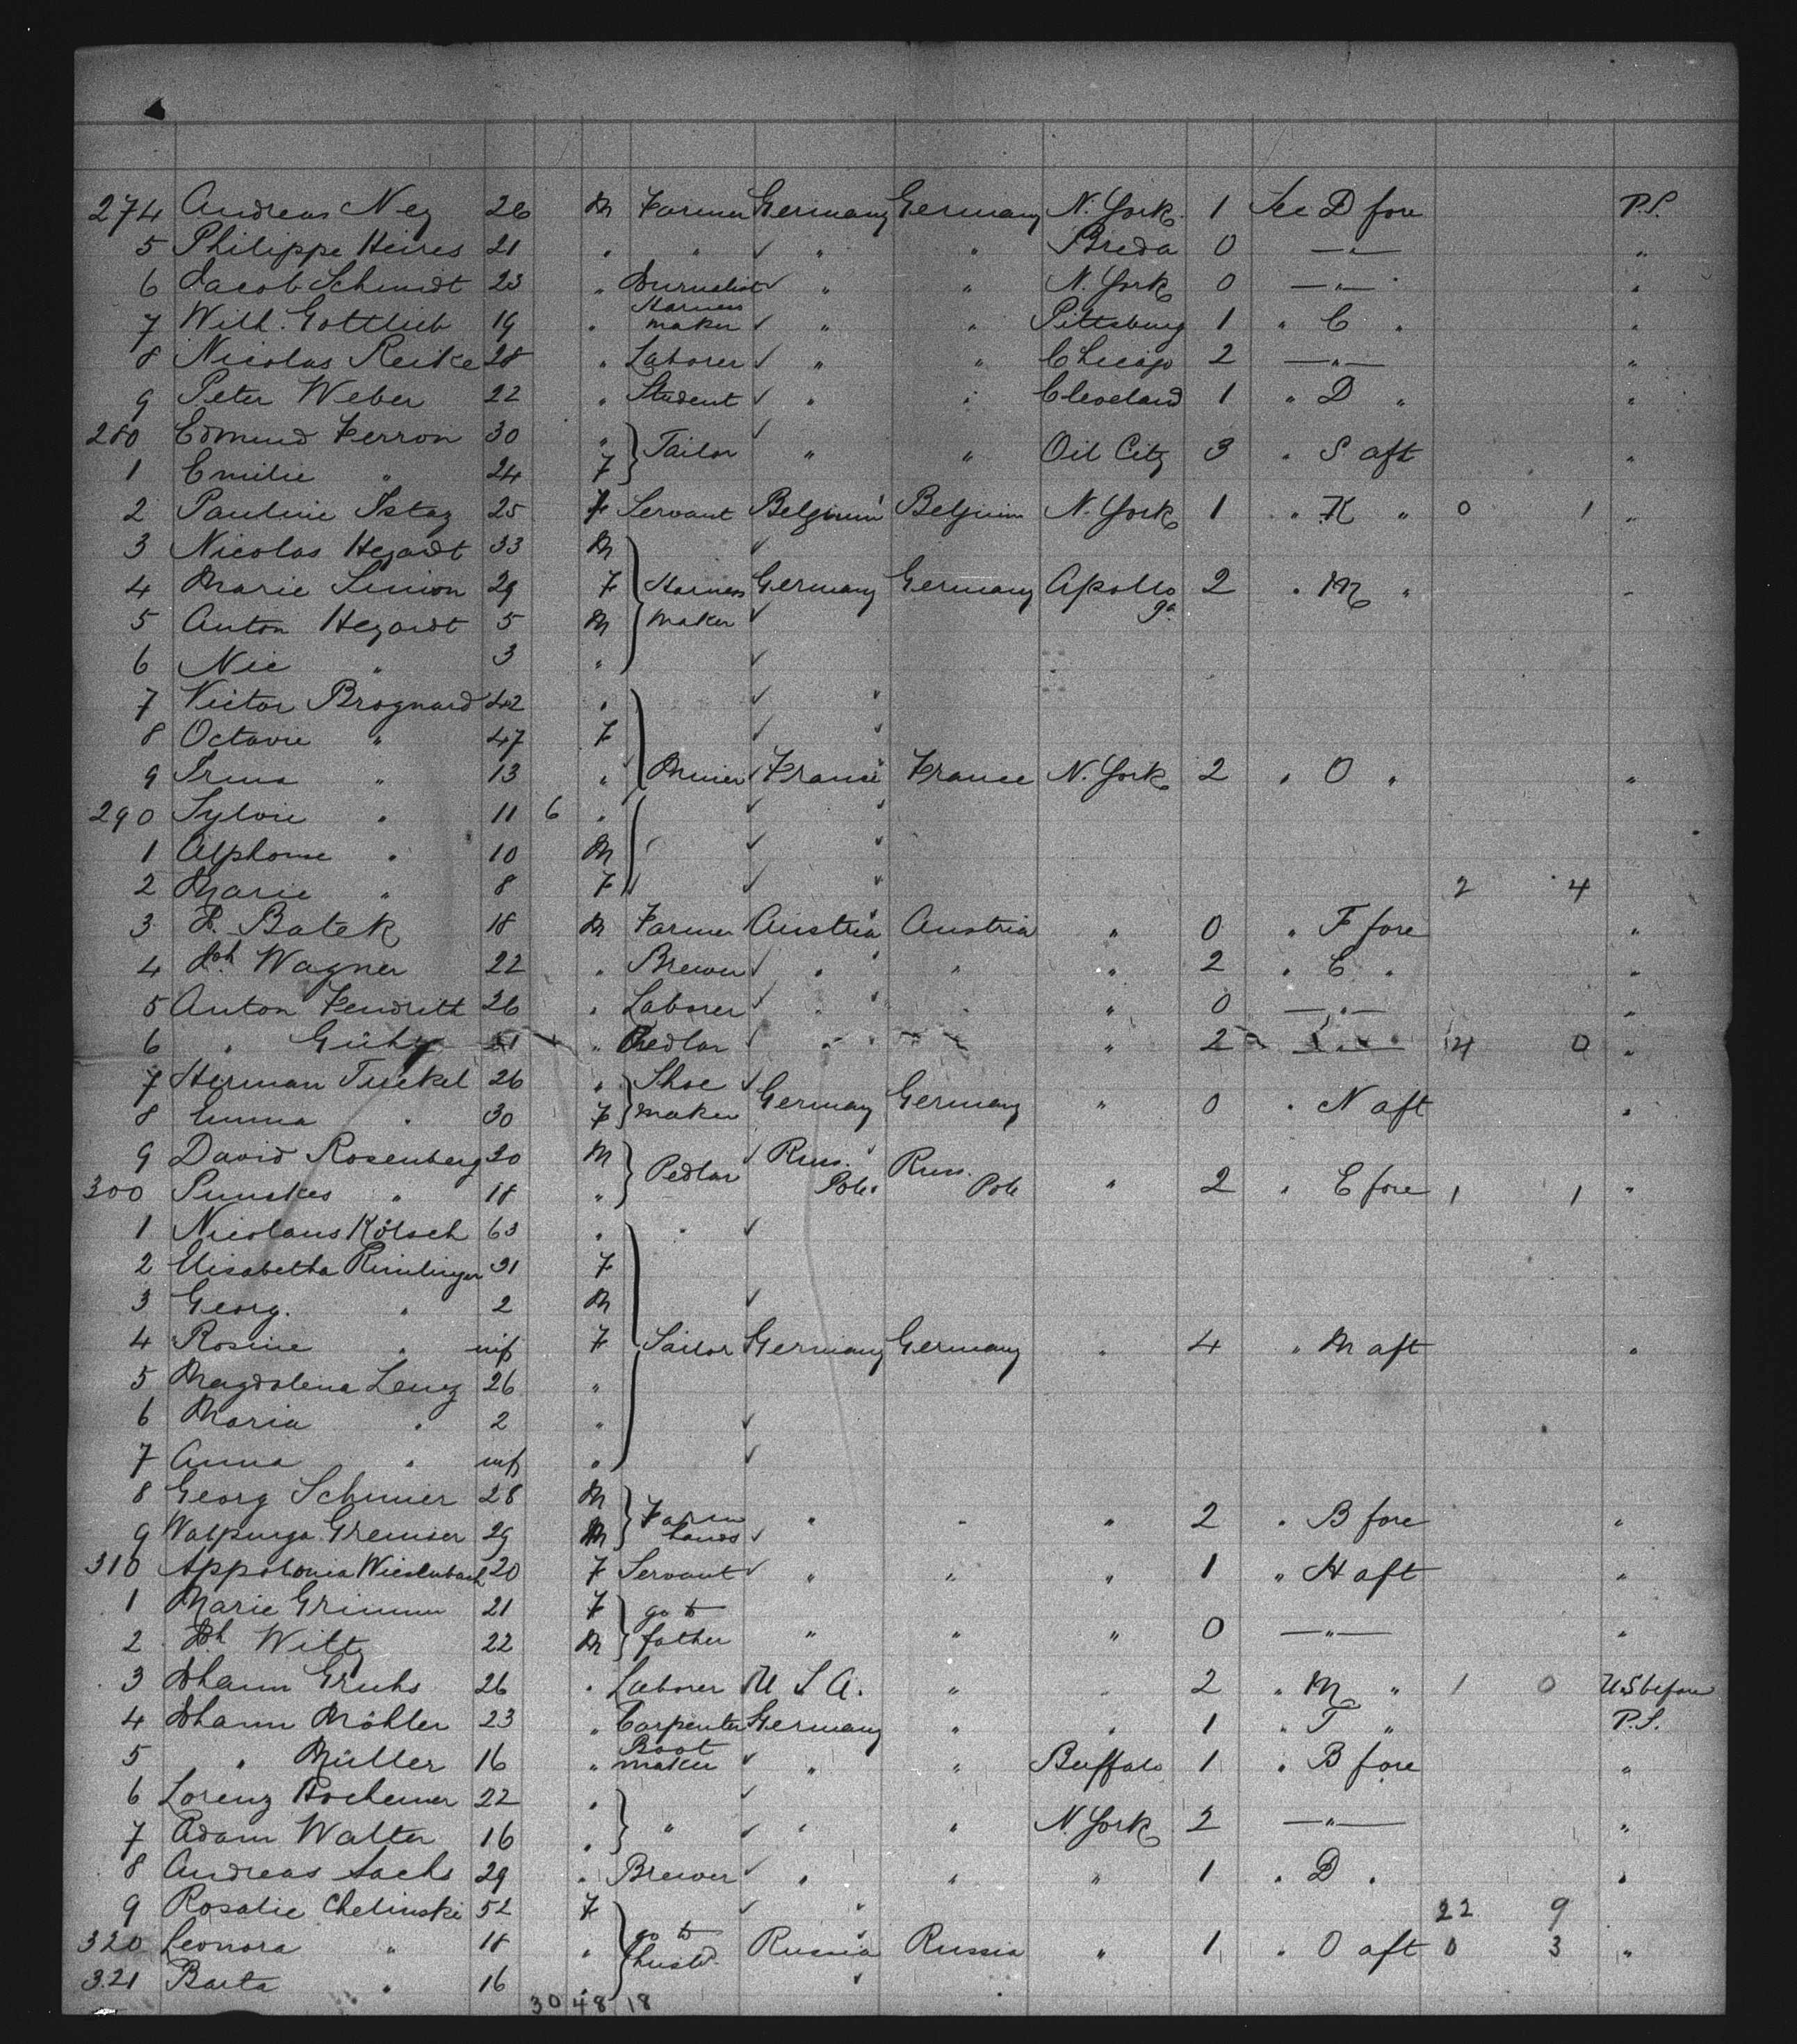 274 Andreas Ney 26 M Farmer Germany Germany N. York 1 See D fore P.S.
5 Philippe Heires 21 " " " " Breda 0 —"— "
6 Jacob Schmidt 23 " " " N. York 0 —"— "
7 Wilh. Gottlieb 19 " Harness maker " " Pittsburg 1 " C " "
8 Nicolas Reike 28 " Laborer " " Chicago 2 —"— "
9 Peter Weber 22 " Student " " Cleveland 1 " D " "
280 Edmund Ferron 30 "
1 Emilie " 24 F Tailor " " Oil City 3 " S aft "
2 Pauline Istaz 25 F Servant Belgium Belgium N. York 1 " K " 0 1 "
3 Nicolas Hezardt 33 M
4 Marie Simon 29 F Harness maker Germany Germany Apollo Pa. 2 " M " "
5 Anton Hezardt 5 M
6 Nic " 3 "
7 Victor Brognard 42 "
8 Octavie " 47 F
9 Irma " 13 " Miner France France N. York 2 " O " "
290 Sylvie " 11 6 "
1 Alphonse " 10 M
2 Marie " 8 F 2 4
3 J. Batek 18 M Farmer Austria Austria " 0 " F fore "
4 Joh Wagner 22 " Brewer " " " 2 " C " "
5 Anton Fendrith 26 " Laborer " " " 0 —"— "
6 " " Pedlar " " " 2 —"— 4 0 "
7 Herman Tuckel 26 "
8 Emma " 30 F Shoe maker Germany Germany " 0 " N aft "
9 David Rosenberg 30 M
300 " 18 " Pedlar Russ. Pole Russ. Pole " 2 " E fore 1 1 "
1 Nicolaus Kölsch 63 " "
2 Elisabetha Rimlinger 31 F
3 Georg. " 2 M
4 Rosine " inf F Sailor Germany Germany " 4 " M aft "
5 Magdalena Lenz 26 "
6 Maria " 2 "
7 Anna " inf "
8 Georg Schuner 28 M
9 Walpurga Gremser 29 M Farm hands " " " 2 " B fore "
310 Appolonia Wieslenbach 20 F Servant " " " 1 " H aft "
1 Marie Grimm 21 F go to
2 Joh Wiltz 22 M father " " " 0 —"— "
3 Johann Gruhs 26 " Laborer U S A. " " 2 " M " 1 0 U.S before
4 Johann Möhler 23 " Carpenter Germany " " 1 " T " P.S.
5 " Müller 16 " Boot maker " " Buffalo 1 " B fore "
6 Lorenz Hochemer 22 "
7 Adam Walter 16 " " " " N. York 2 —"— "
8 Andreas Sachs 29 " Brewer " " " 1 " D " "
9 Rosalie Chelinski 52 F 22 9
320 Leonora " 18 " go to husbd. Russia Russia " 1 " O aft 0 3 "
321 Barta " 16 "
30 48 18